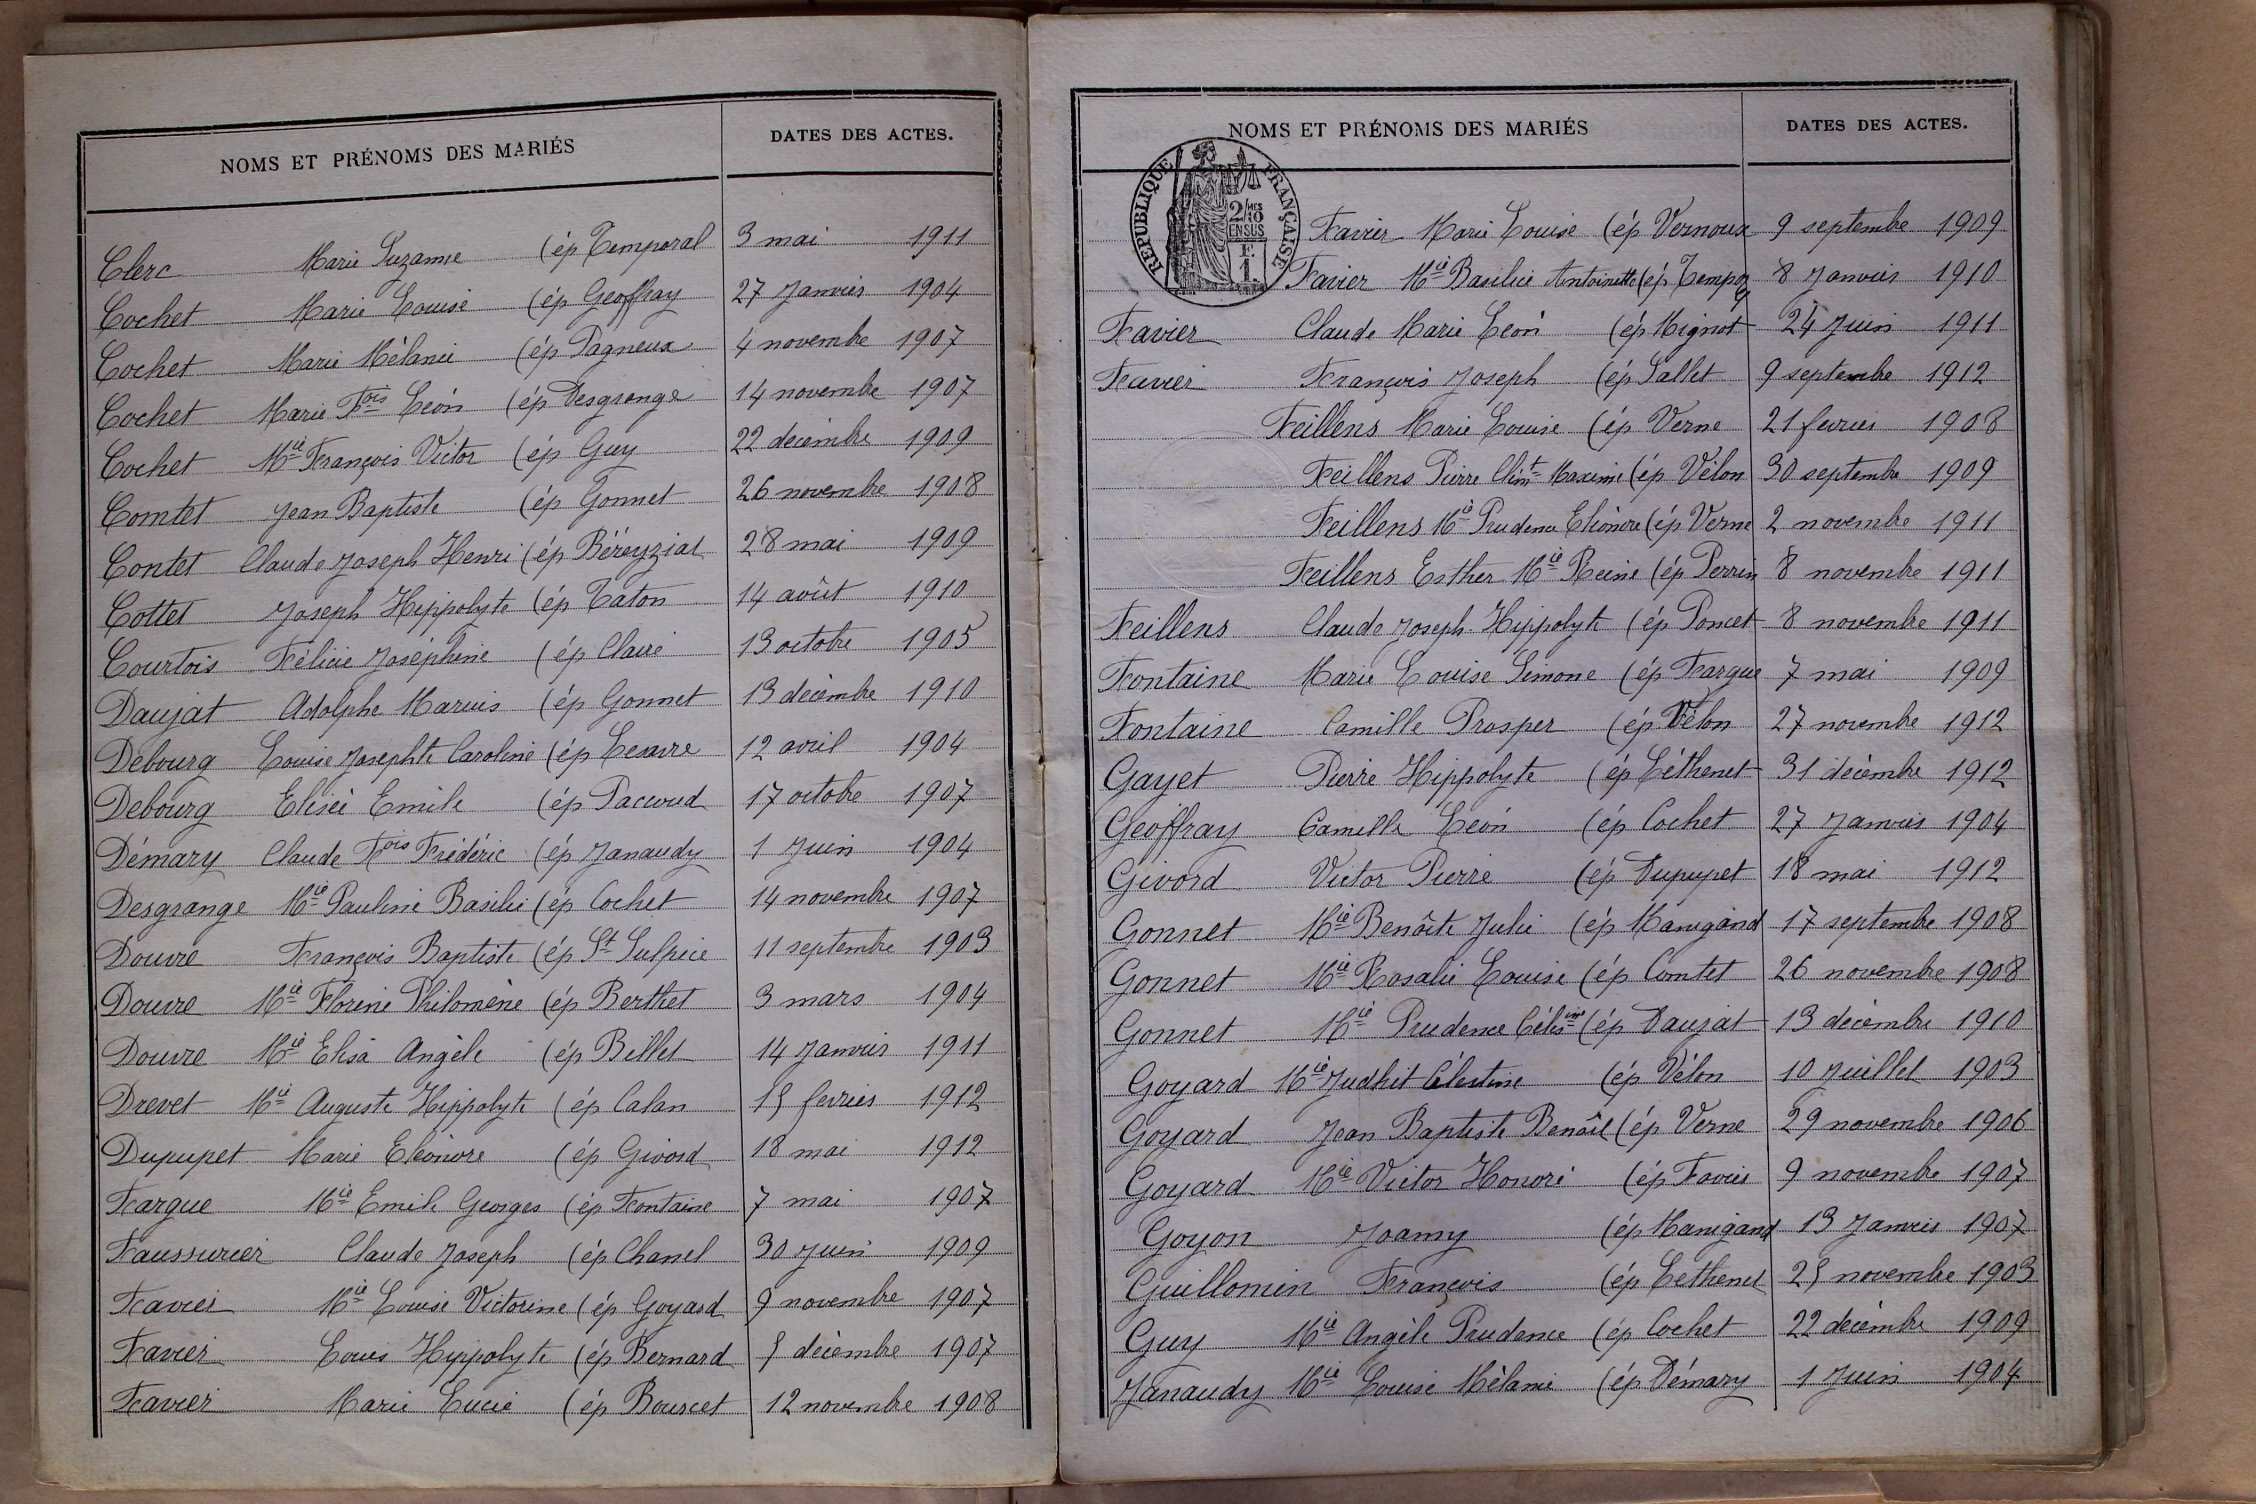 NOMS ET PRÉNOMS DES MARIÉS DATES DES ACTES.
Clerc Marie Suzanne (ép Temporal 3 mai 1911
Cochet Marie Louise (ép Geoffray 27 Janvier 1904
Cochet Marie Mélanie (ép Pagneux 4 novembre 1907
Cochet Marie Fois Léon (ép Desgrange 14 novembre 1907
Cochet Mie François Victor (ép Guy 22 décembre 1909
Comtet Jean Baptiste (ép Gonnet 26 novembre 1908
Contet Claude Joseph Henri (ép Béreyziat 28 mai 1909
Cottet Joseph Hippolyte (ép Taton 14 août 1910
Courtois Félicie Joséphine (ép Claire 13 octobre 1905
Daujat Adolphe Marius (ép Gonnet 13 décembre 1910
Debourg Louise Josephte Caroline (ép 12 avril 1904
Debourg Elisée Emile (ép Paccoud 17 octobre 1907
Démary Claude Fois Frédéric (ép Janaudy 1 Juin 1904
Desgrange Mie Pauline Basilie (ép Cochet 14 novembre 1907
Douvre François Baptiste (ép St Sulpice 11 septembre 1903
Douvre Mie Florine Philomène (ép Berthet 3 mars 1904
Douvre Mie Elisa Angèle (ép Billet 14 Janvier 1911
Drevet Mie Auguste Hippolyte (ép Calan 15 fevrier 1912
Dupupet Marie Eléonore (ép Givord 18 mai 1912
Fargue Mie Emile Georges (ép Fontaine 7 mai 1907
Faussurier Claude Joseph (ép Chanel 30 Juin 1909
Favier Mie Louise Victorine (ép Goyard 9 novembre 1907
Favier Louis Hippolyte (ép Bernard 5 décembre 1907
Favier Marie Lucie (ép Bourcet 12 novembre 1908
NOMS ET PRÉNOMS DES MARIÉS DATES DES ACTES.
RÉPUBLIQUE FRANÇAISE
2/10 MES
EN SUS
1 F.
Favier Marie Louise (ép Vernoux 9 septembre 1909
Favier Mie Basilie Antoinette (ép 8 Janvier 1910
Favier Claude Marie Léon (ép Mignot 24 Juin 1911
Favier François Joseph (ép Sallet 9 septembre 1912
Feillens Marie Louise (ép Verne 21 fevrier 1908
Feillens Pierre Climt Maxime (ép Vélon 30 septembre 1909
Feillens Mie Prudence Eléonore (ép Verne 2 novembre 1911
Feillens Esther Mie Reine (ép Perrin 8 novembre 1911
Feillens Claude Joseph Hippolyte (ép Poncet 8 novembre 1911
Fontaine Marie Louise Simone (ép Fargue 7 mai 1909
Fontaine Camille Prosper (ép Vélon 27 novembre 1912
Gayet Pierre Hippolyte (ép Léthenet 31 décembre 1912
Geoffray Camille Léon (ép Cochet 27 Janvier 1904
Givord Victor Pierre (ép Dupupet 18 mai 1912
Gonnet Mie Benôite Julie (ép Manigand 17 septembre 1908
Gonnet Mie Rosalie Louise (ép Comtet 26 novembre 1908
Gonnet Mie Prudence Célesine (ép Daujat 13 décembre 1910
Goyard Mie Judhit Célestine (ép Vélon 10 Juillet 1903
Goyard Jean Baptiste Benôit (ép Verne 29 novembre 1906
Goyard Mie Victor Honoré (ép Favier 9 novembre 1907
Goyon Joamy (ép Manigand 13 Janvier 1907
Guillomin François (ép Lethenet 25 novembre 1903
Guy Mie Angèle Prudence (ép Cochet 22 décembre 1909
Janaudy Mie Louise Mélanie (ép Démary 1 Juin 1904